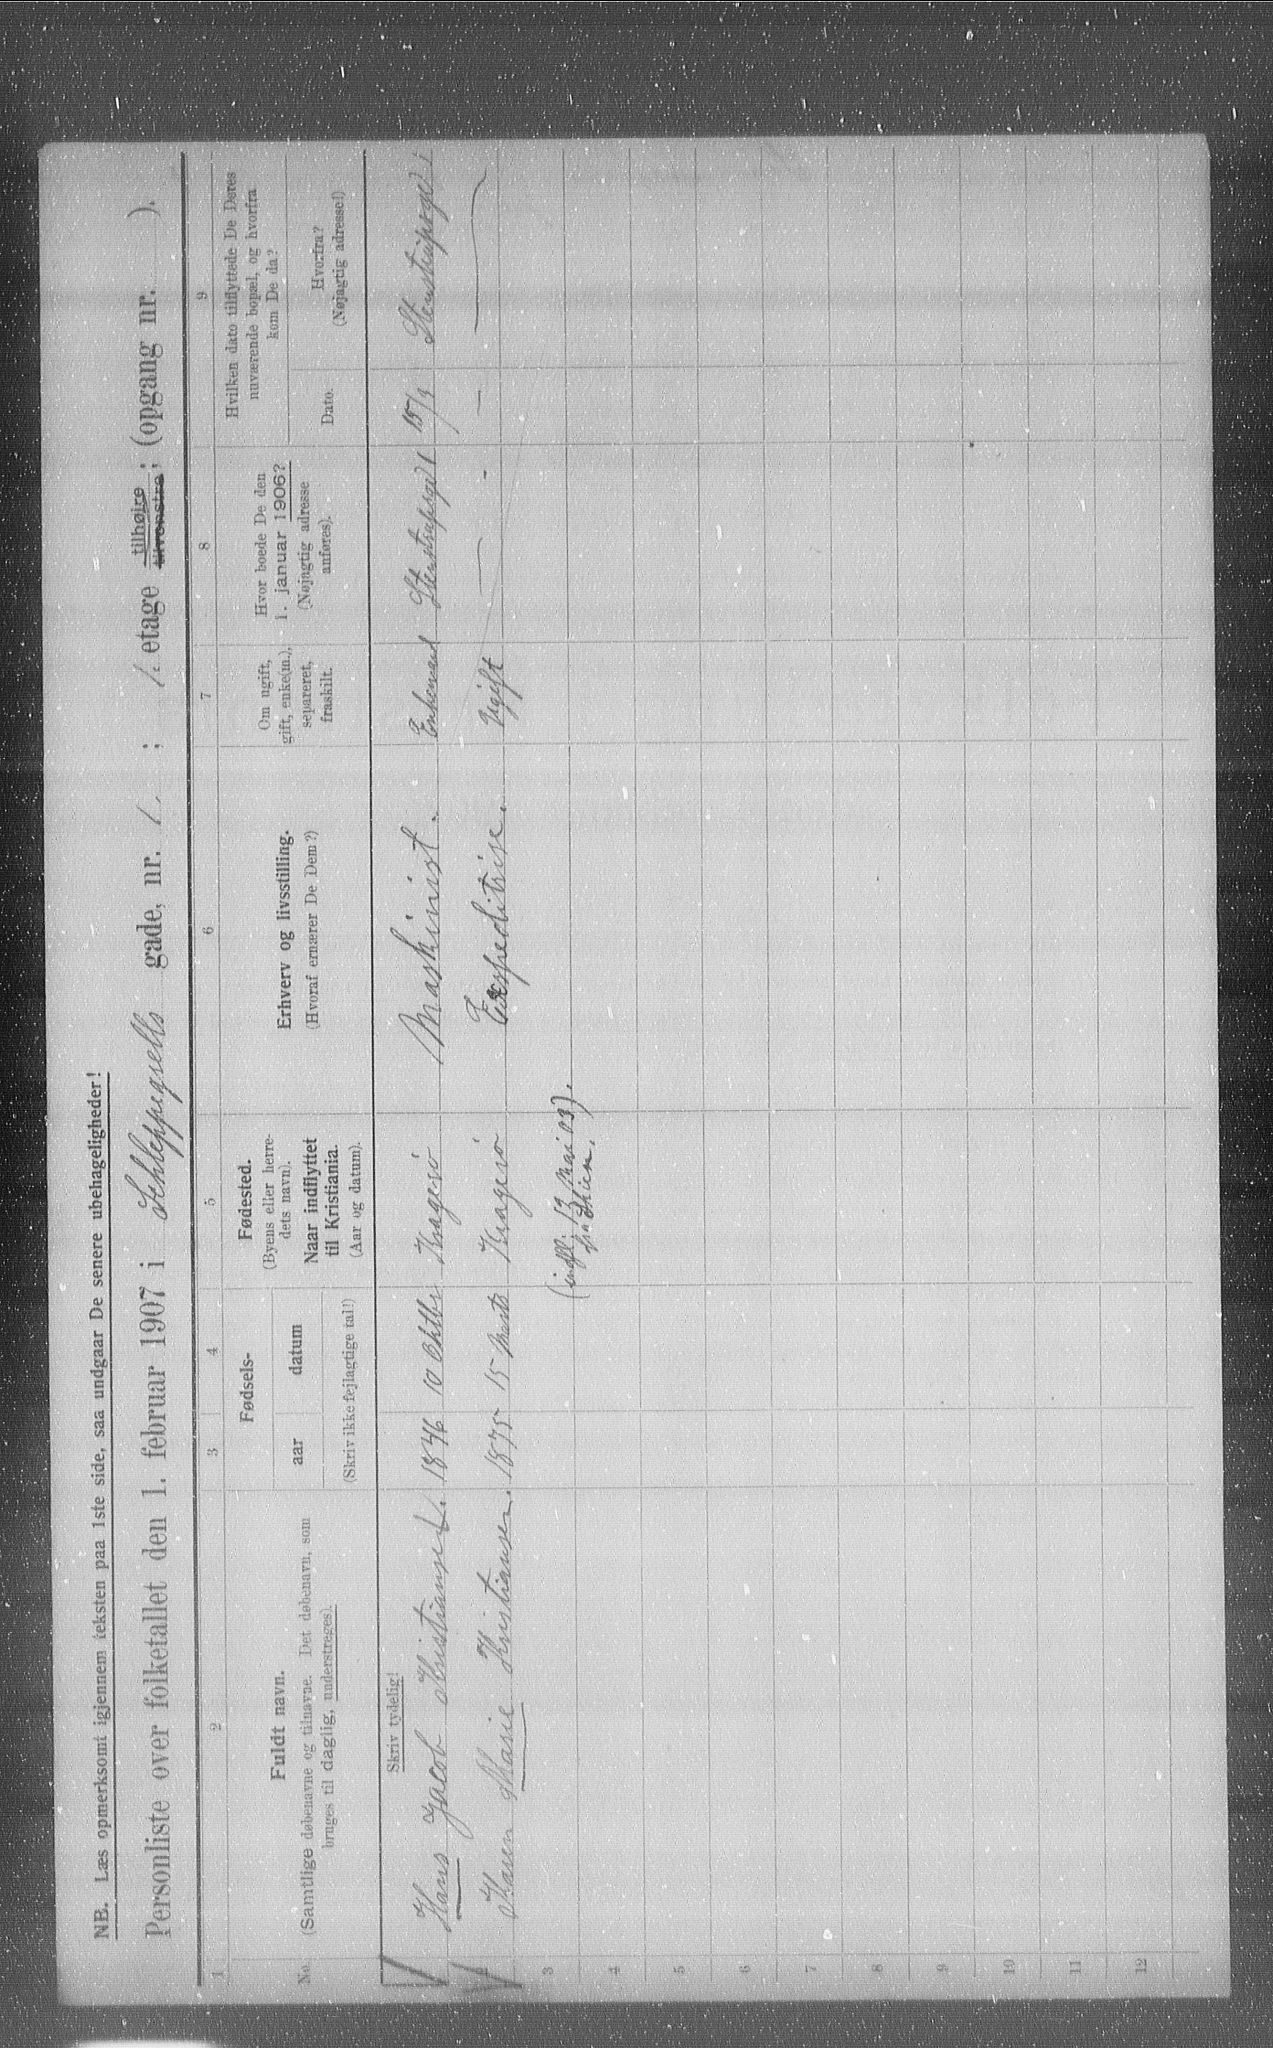 NB. Læs opmerksomt igjennem teksten paa 1ste side, saa undgaar De senere ubehageligheder!
Personliste over folketallet den 1. februar 1907 i Schleppegrells gade, nr. 1. ; 1. etage tilhøire tilvenstre; (opgang nr. ).
1 2 3 4 5 6 7 8 9
No.
Fuldt navn.
(Samtlige døbenavne og tilnavne. Det døbenavn, som
bruges til daglig, understreges).
Fødsels-
aar datum
(Skriv ikke fejlagtige tal!)
Fødested.
(Byens eller herre-
dets navn).
Naar indflyttet
til Kristiania.
(Aar og datum).
Erhverv og livsstilling.
(Hvoraf ernærer De Dem?)
Om ugift,
gift, enke(m.),
separeret,
fraskilt.
Hvor boede De den
1. januar 1906?
(Nøjagtig adresse
anføres).
Hvilken dato tilflyttede De Deres
nuværende bopæl, og hvorfra
kom De da?
Dato.
Hvorfra?
(Nøjagtig adresse!)
Skriv tydelig!
Hans Jacob Kristiansen. 1846 10 Oktbr Kragerø Maskinist. Enkemand Stenstrupsgd 1
2 Karen Marie Kristiansen. 1875 15 Marts Kragerø Expeditrise. Ugift — - — —
3 (indfl. 13 Mai 03).
fra Skien.
4
5
6
7
8
9
10
11
12